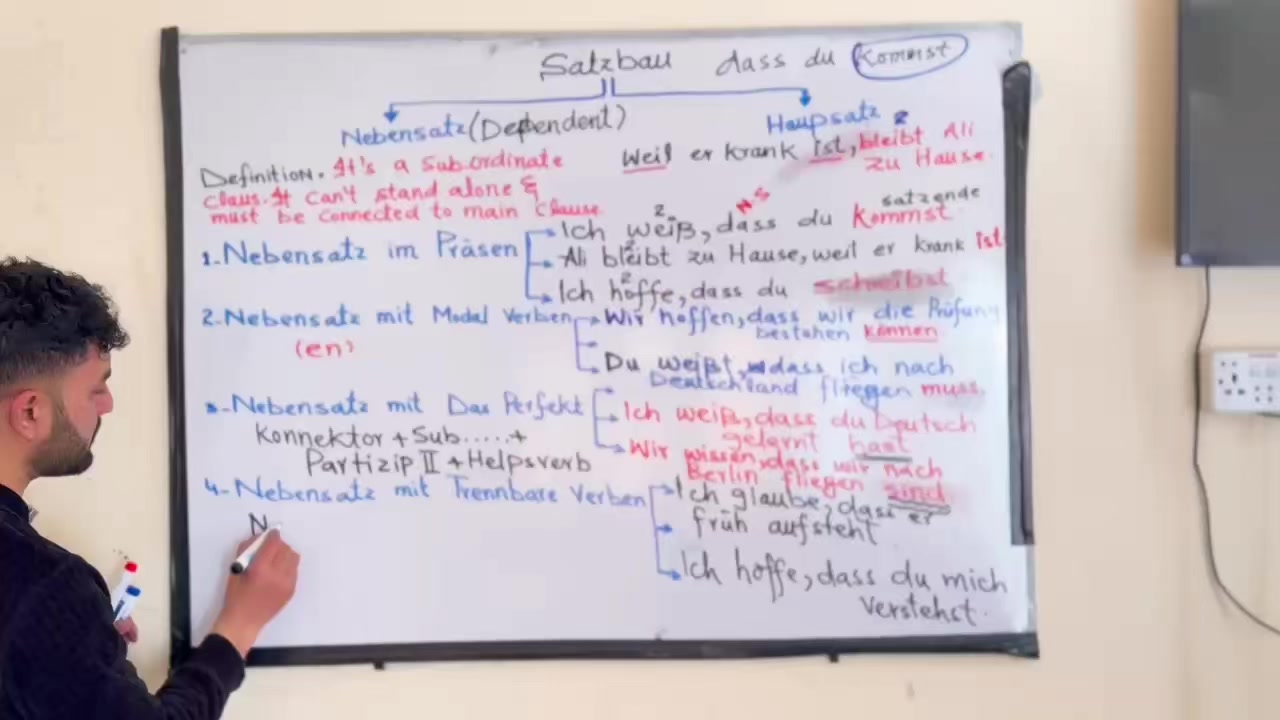 Satzbau dass du kommst
Nebensatz (Dependent) Haupsatz
Definition. It's a Subordinate
claus. It can't stand alone &
must be connected to main clause
Weil er krank ist, bleibt Ali
2
zu Hause.
N.S
satzende
2
Ich weiß, dass du kommst
1. Nebensatz im Präsen
2
Ali bleibt zu Hause, weil er krank ist
2
Ich hoffe, dass du schreibst
2. Nebensatz mit Modal Verben
(en)
Wir hoffen, dass wir die Prüfung
bestehen können
Du weißt, dass ich nach
Deutschland fliegen muss.
3- Nebensatz mit Das Perfekt
Konnektor + Sub.....+
Partizip II + Helpsverb
Ich weiß, dass du Deutsch
gelarnt hast
Wir wissen, dass wir nach
Berlin fliegen sind
4- Nebensatz mit Trennbare Verben
N
Ich glaube, dass er
früh aufsteht
Ich hoffe, dass du mich
verstehst.